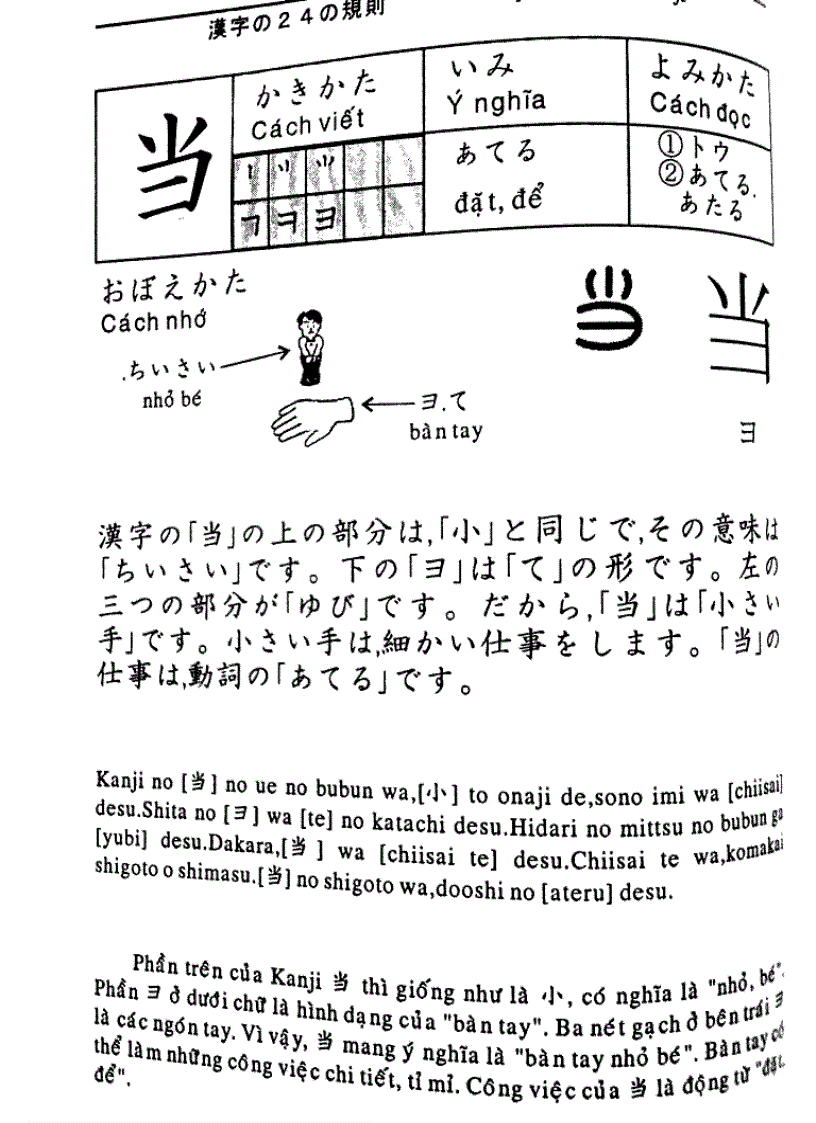 漢字の24の規則
当
かきかた
Cách viết
いみ
Ý nghĩa
よみかた
Cách đọc
あてる
đặt, để
①トウ
②あてる.
あたる
おぼえかた
Cách nhớ
.ちいさい
nhỏ bé
ヨ.て
bàn tay
当
ヨ
漢字の「当」の上の部分は,「小」と同じで,その意味は
「ちいさい」です。下の「ヨ」は「て」の形です。左の
三つの部分が「ゆび」です。だから,「当」は「小さい
手」です。小さい手は,細かい仕事をします。「当」の
仕事は,動詞の「あてる」です。
Kanji no [当] no ue no bubun wa,[小] to onaji de,sono imi wa [chiisai]
desu.Shita no [ヨ] wa [te] no katachi desu.Hidari no mittsu no bubun ga
[yubi] desu.Dakara,[当 ] wa [chiisai te] desu.Chiisai te wa,komakai
shigoto o shimasu.[当] no shigoto wa,dooshi no [ateru] desu.
Phần trên của Kanji 当 thì giống như là 小, có nghĩa là "nhỏ, bé".
Phần ヨ ở dưới chữ là hình dạng của "bàn tay". Ba nét gạch ở bên trái ヨ
là các ngón tay. Vì vậy, 当 mang ý nghĩa là "bàn tay nhỏ bé". Bàn tay có
thể làm những công việc chi tiết, tỉ mỉ. Công việc của 当 là động từ "đặt,
để".